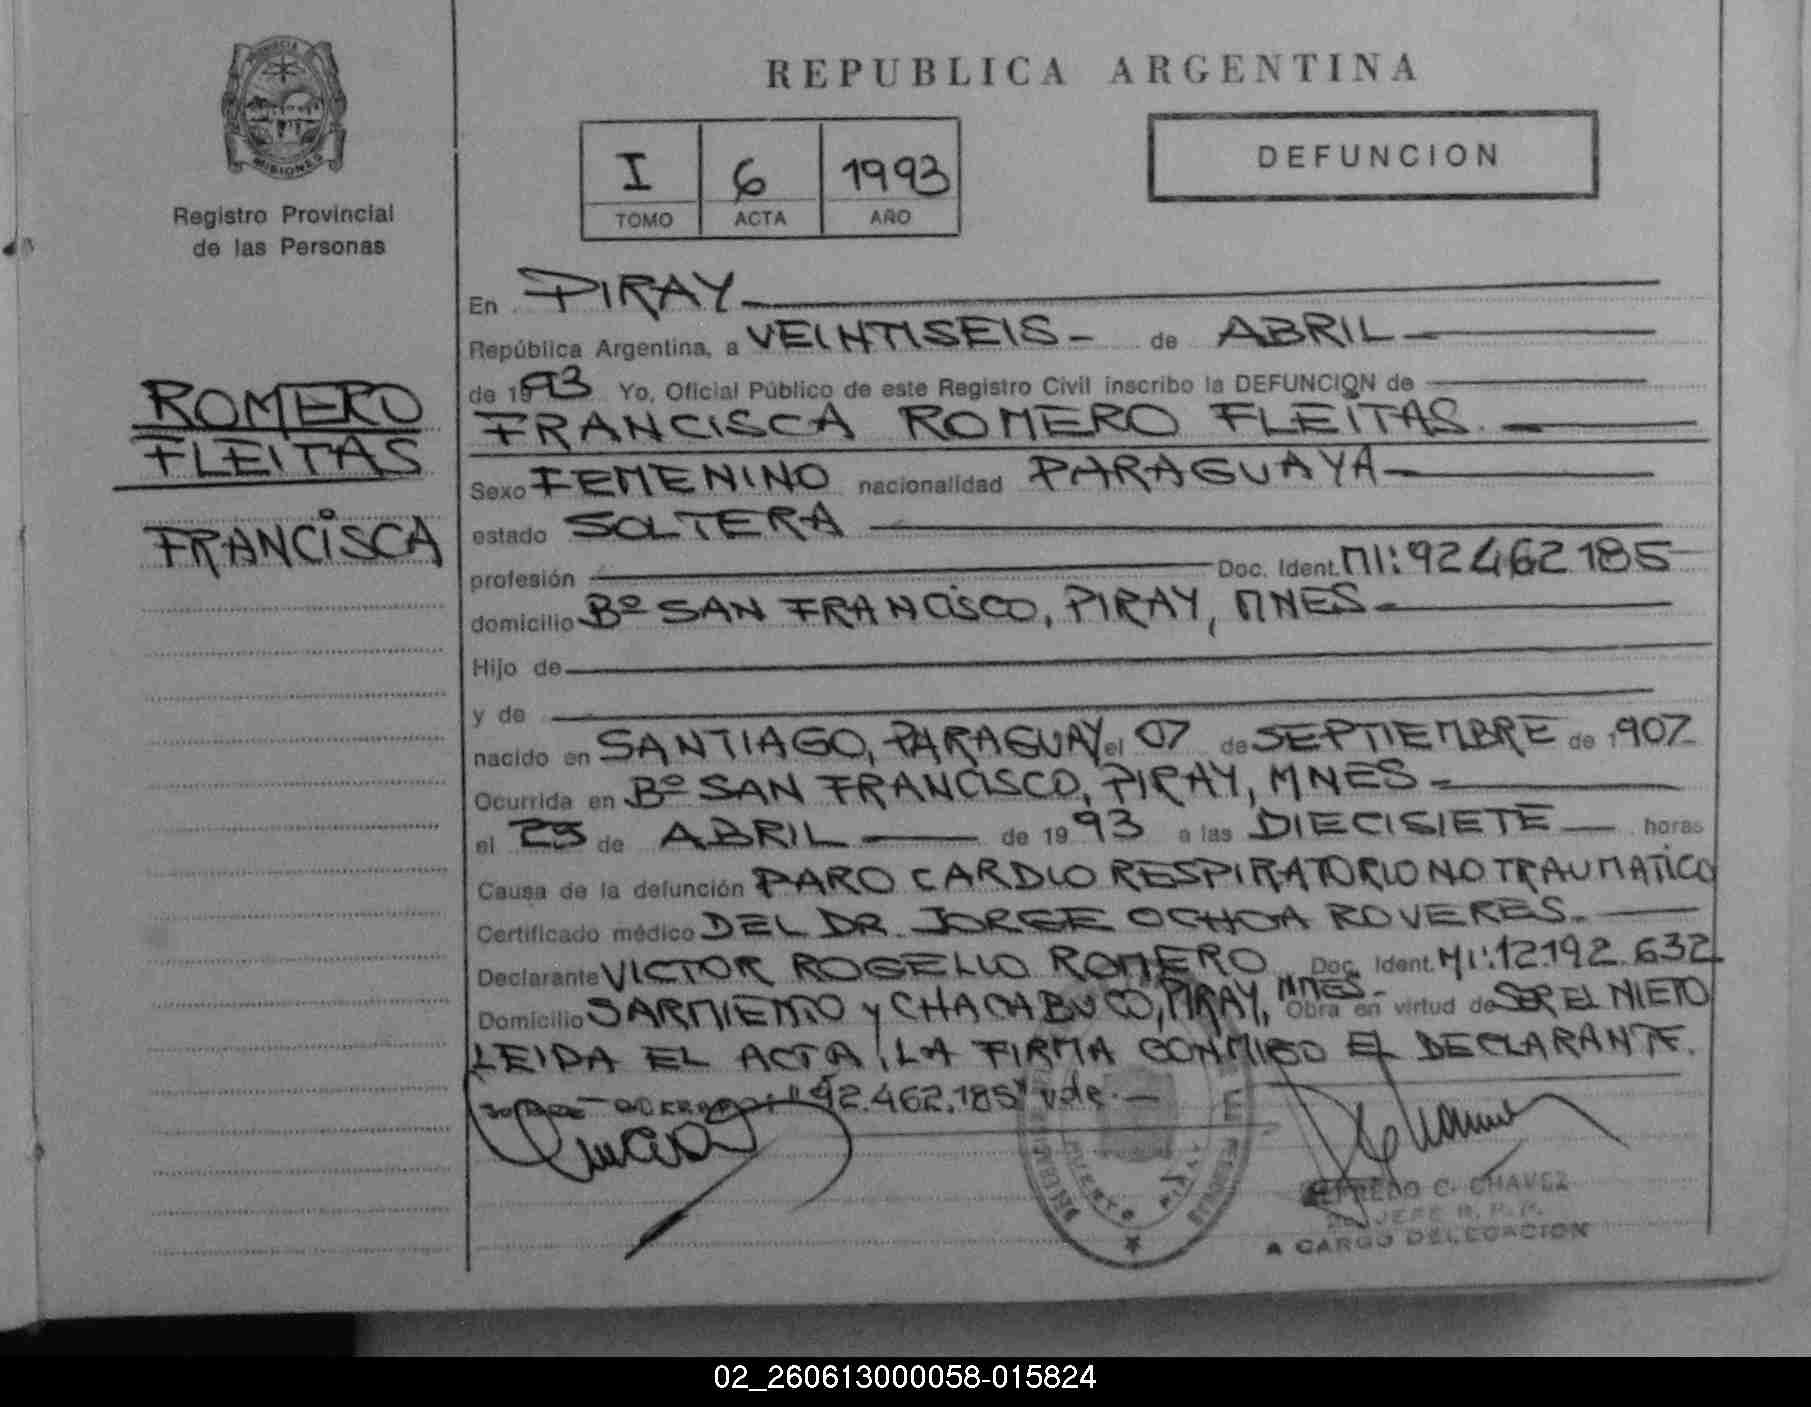 PROVINCIA
MISIONES
Registro Provincial
de las Personas
ROMERO
FLEITAS
FRANCISCA
REPUBLICA ARGENTINA
I 6 1993
TOMO ACTA AÑO
DEFUNCION
En PIRAY
República Argentina, a VEINTISEIS - de ABRIL
de 1993 Yo, Oficial Público de este Registro Civil inscribo la DEFUNCION de
FRANCISCA ROMERO FLEITAS
Sexo FEMENINO nacionalidad PARAGUAYA
estado SOLTERA
profesión Doc. Ident. MI: 92462185
domicilio Bº SAN FRANCISCO, PIRAY, MNES
Hijo de
y de
nacido en SANTIAGO, PARAGUAY el 07 de SEPTIEMBRE de 1907
Ocurrida en Bº SAN FRANCISCO, PIRAY, MNES
el 25 de ABRIL de 1993 a las DIECISIETE horas
Causa de la defunción PARO CARDIO RESPIRATORIO NO TRAUMATICO
Certificado médico DEL DR. JORGE OCHOA ROVERES.
Declarante VICTOR ROGELIO ROMERO Doc. Ident. MI: 12.192.632
Domicilio SARMIENTO y CHACABUCO, PIRAY, MNES - Obra en virtud de SER EL NIETO
LEIDA EL ACTA, LA FIRMA CONMIGO EL DECLARANTE.
"92.462.185" vale. -
ALFREDO C. CHAVEZ
JEFE R. P. P.
A CARGO DELEGACION
02_260613000058-015824